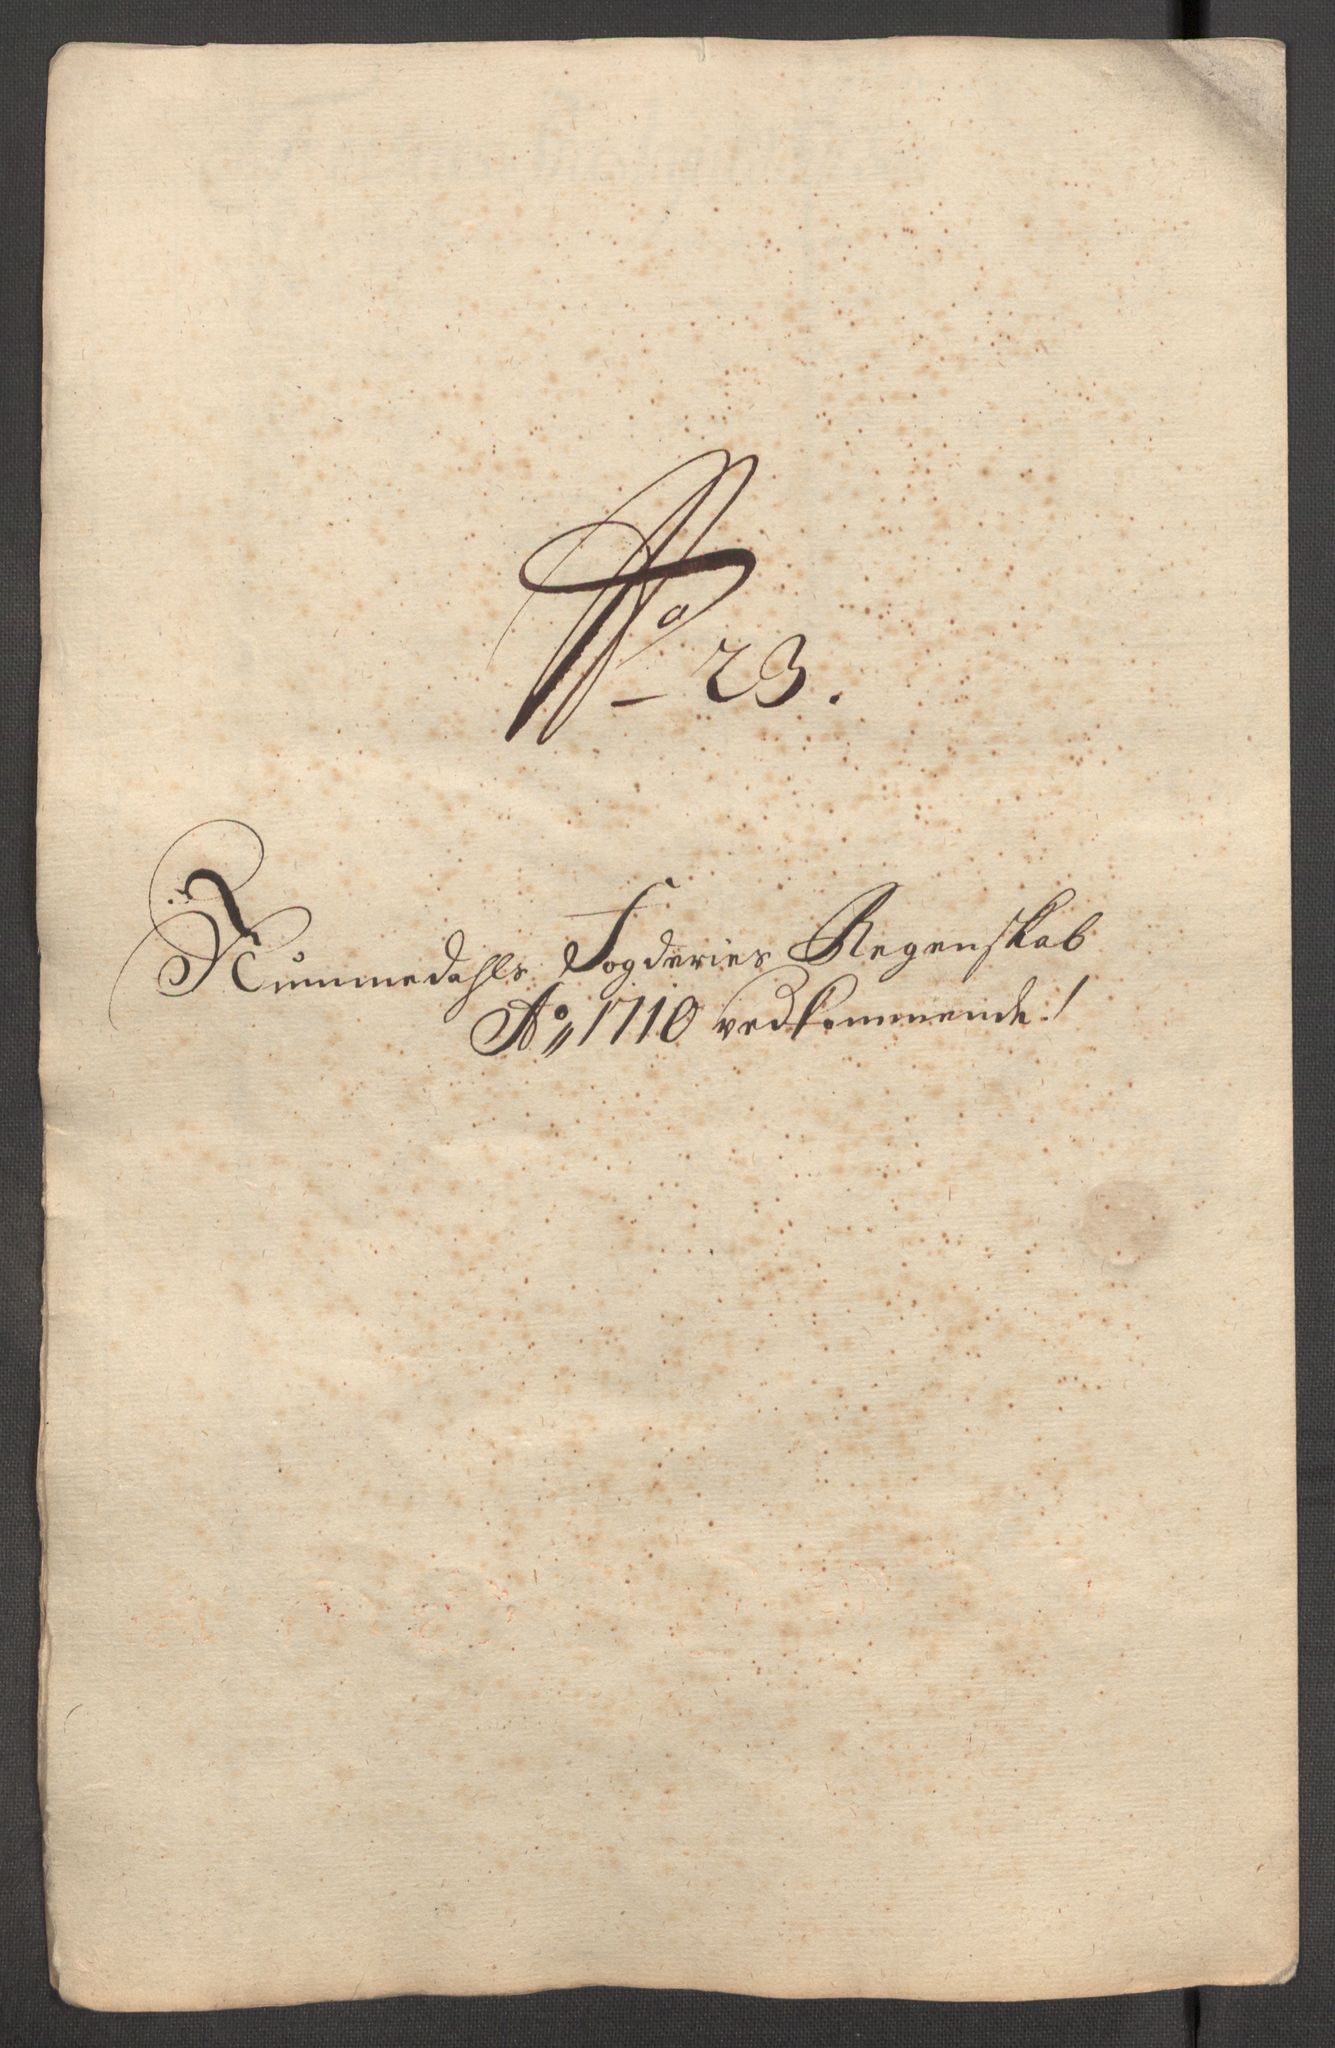 No 23.
Nummedahls Fogderies Regenskab
Ao 1710 vedkommende!